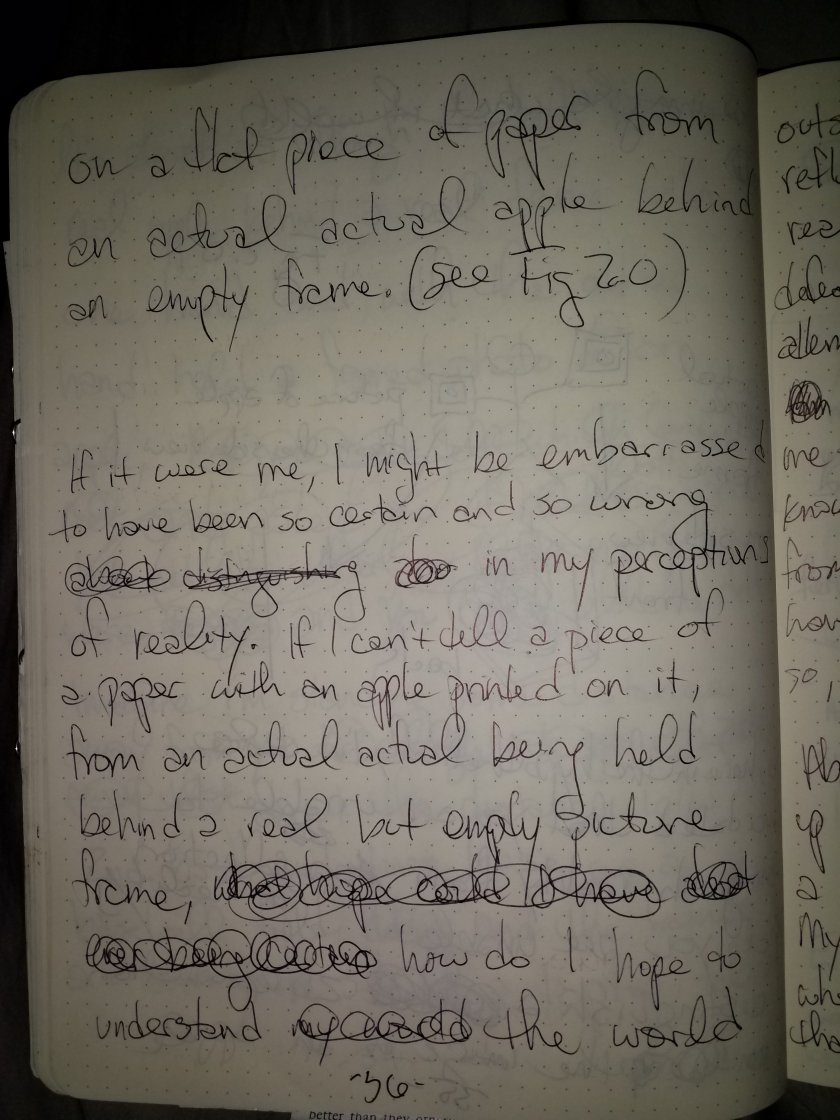 on a flat piece of paper from
an actual actual apple behind
an empty frame. (see Fig 2.0)
If it were me, I might be embarrassed
to have been so certain and so wrong
distinguishing in my perceptions
of reality. If I can't tell a piece of
a paper with an apple printed on it,
from an actual actual being held
behind a real but empty picture
frame, what hope could I have
how do I hope to
understand the world
-36-
outs
refl
rea
me
know
from
how
so,
Ab
up
a
My
who
tha
better than they